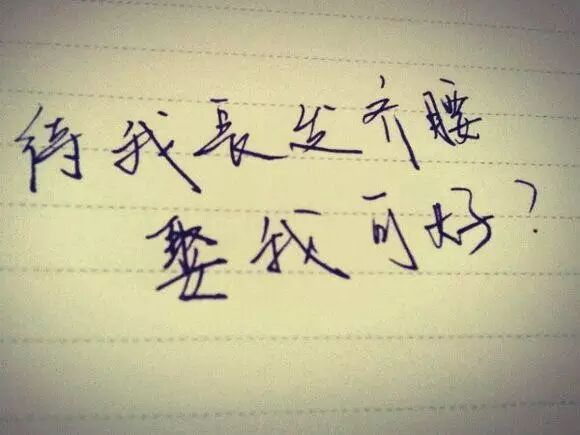 待我長发齐腰
娶我可好?